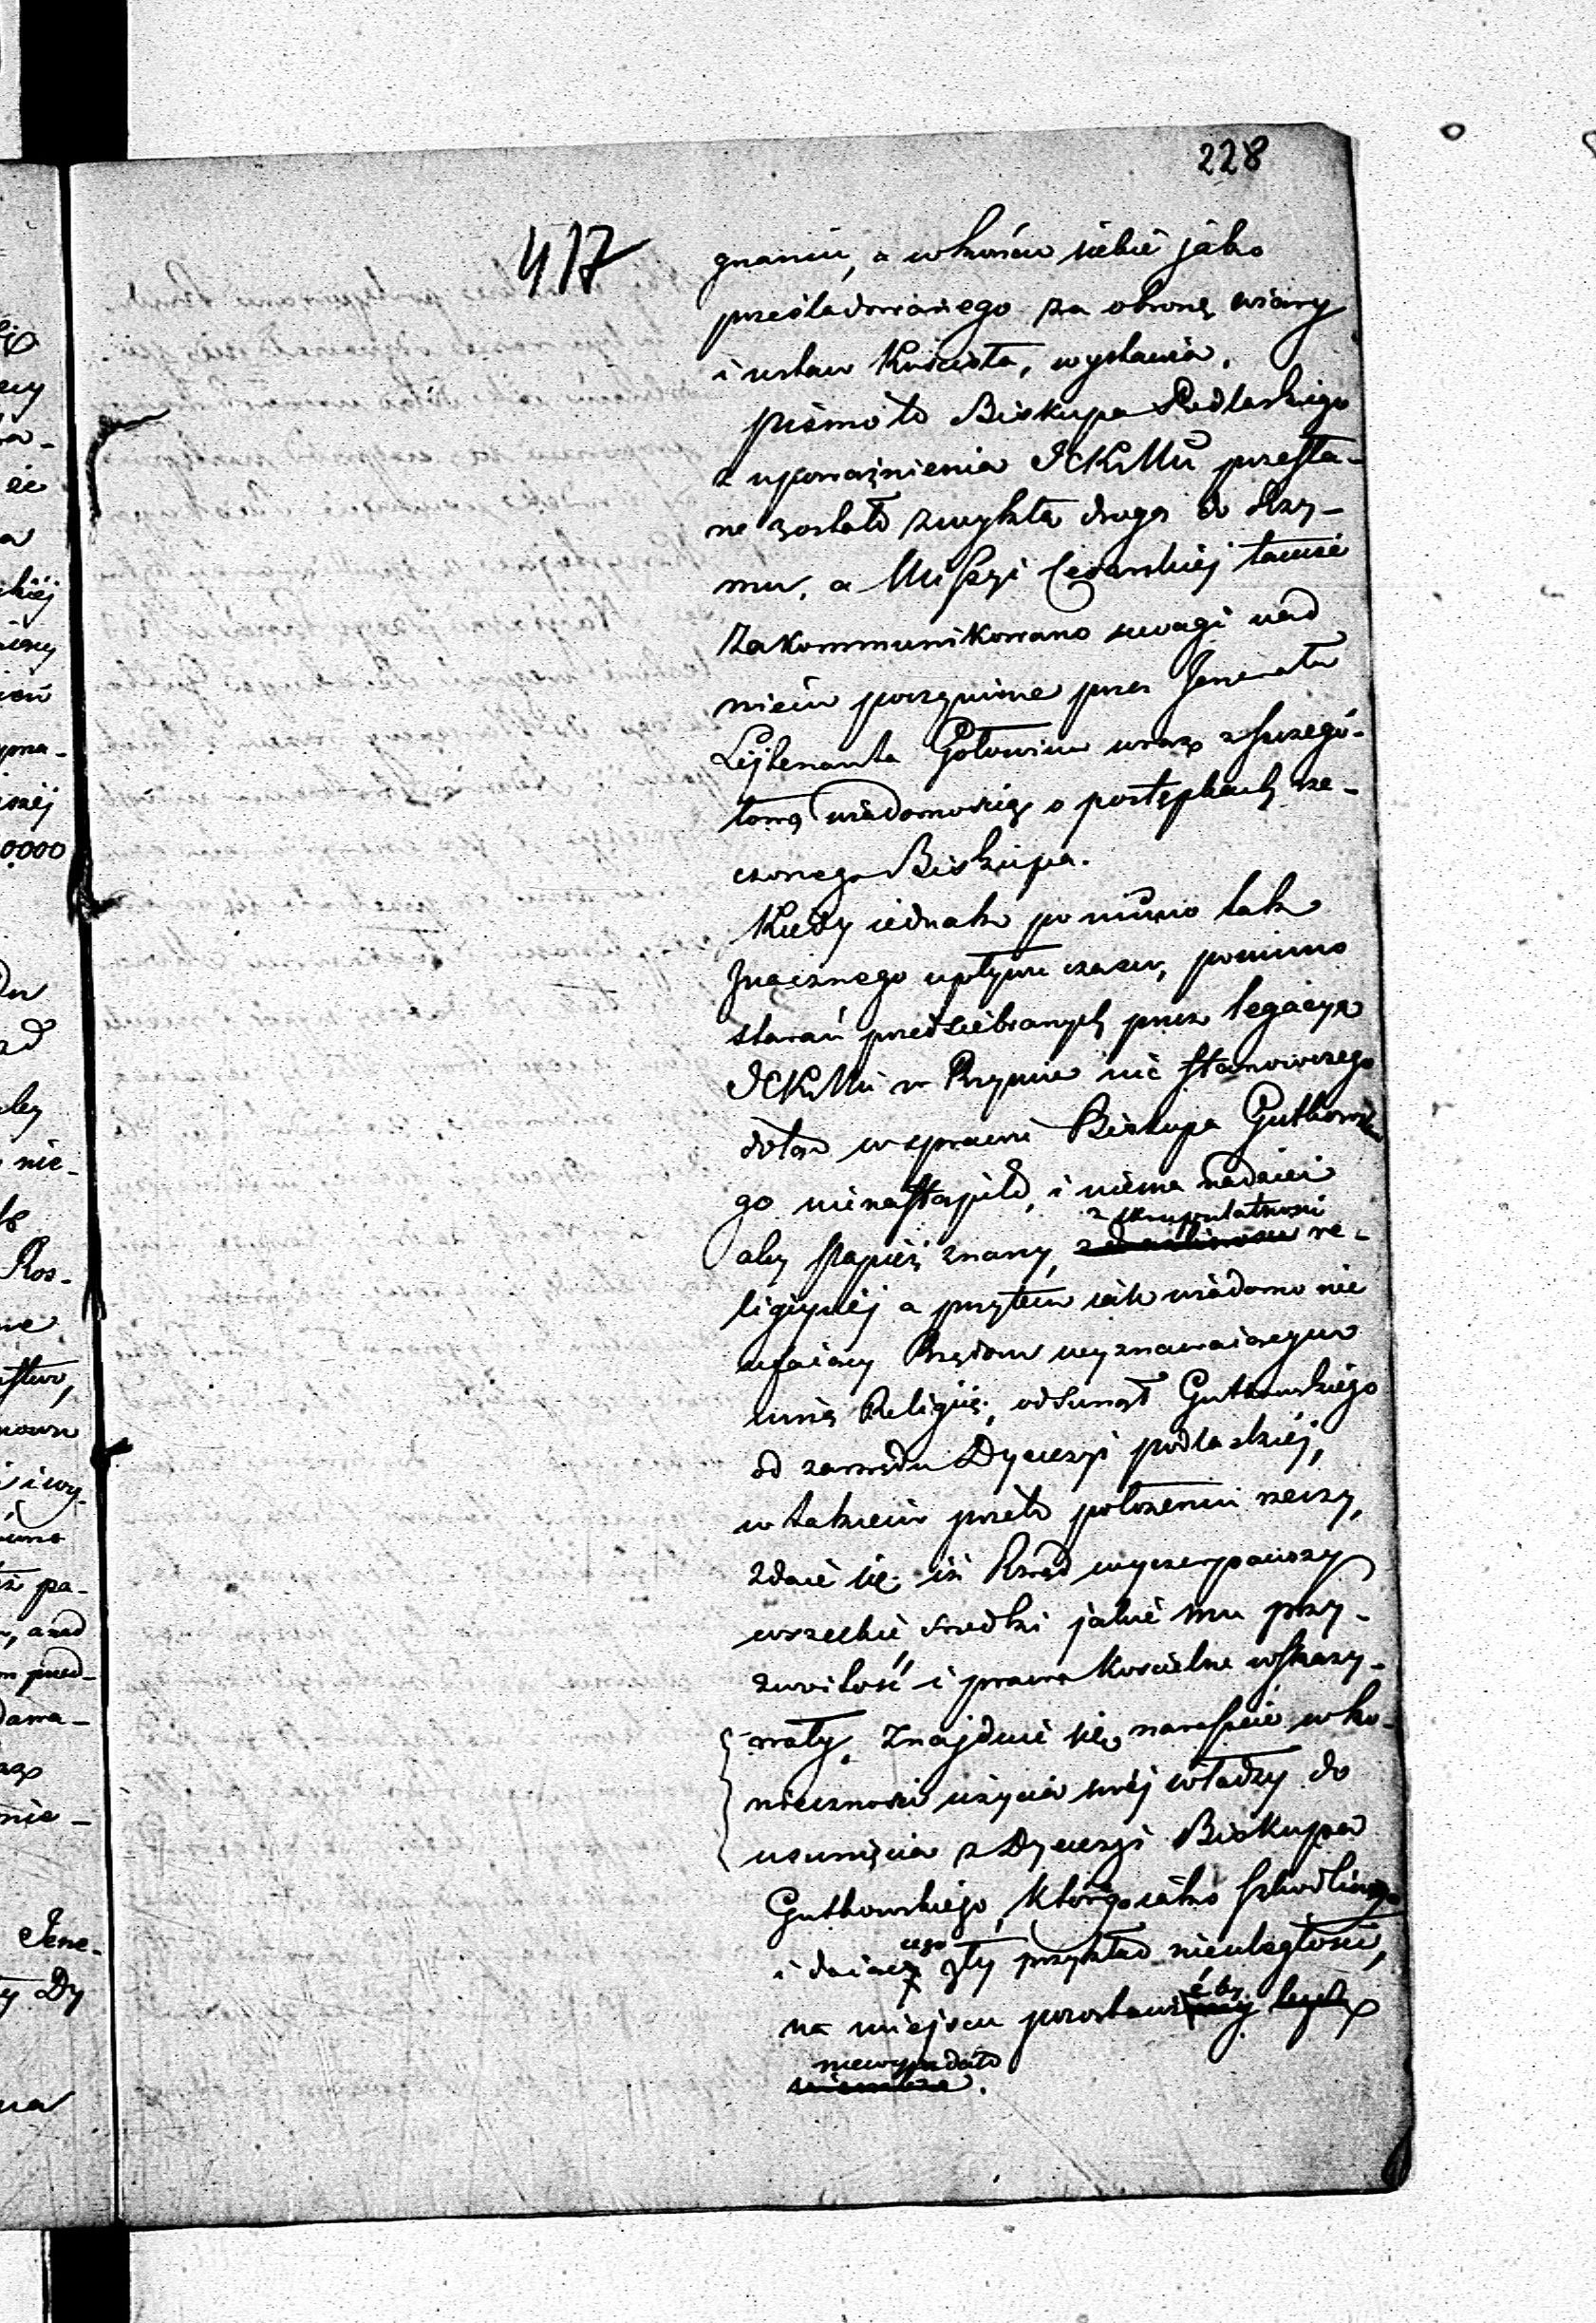 228
417
gnaniu, a w końcu siebie jako
prześladowanego za obronę wiary
i ustaw Kościoła, wystawia.
Pismo to Biskupa Podlaskiego
z upoważnienia JCKMci przesła-
ne zostało zwykłą drogą do Rzy-
mu, a Missyi Cesarskiej tamże
zakommunikowano uwagi nad
niem poczynione przez Jenerała
Lejtenanta Gołowin wraz z szczegó-
łową wiadomością o postępkach rze-
czonego Biskupa.
Kiedy iednak pomimo tak
znacznego upływu czasu, pomimo
starań przedsiębranych przez legacyą
JCKMci w Rzymie nic stanowczego
dotąd w sprawie Biskupa Gutkowskie
go nienastąpiło, i niema nadziei
z skrupulatności
aby Papież znany, re-
ligijnéj a przytem iak wiadomo nie
ufaiący Rządom wyznawaiącym
inną Religię, odsunął Gutkowskiego
od zarządu Dyecezyi podlaskiéj,
w takiem przeto położeniu rzeczy,
zdaie się iż Rząd wyczerpawszy
wszelkie środki jakie mu przy-
zwoitość i prawa Kościelne wskazy-
wały, znajduie się nareszcie w ko-
nieczności użycia swéj władzy do
usunięcia z Dyecezyi Biskupa
Gutkowskiego, którego iako szkodliwego
i daiącego zły przykład nieuległości,
na miejscu pozostawić by
niewypadało.